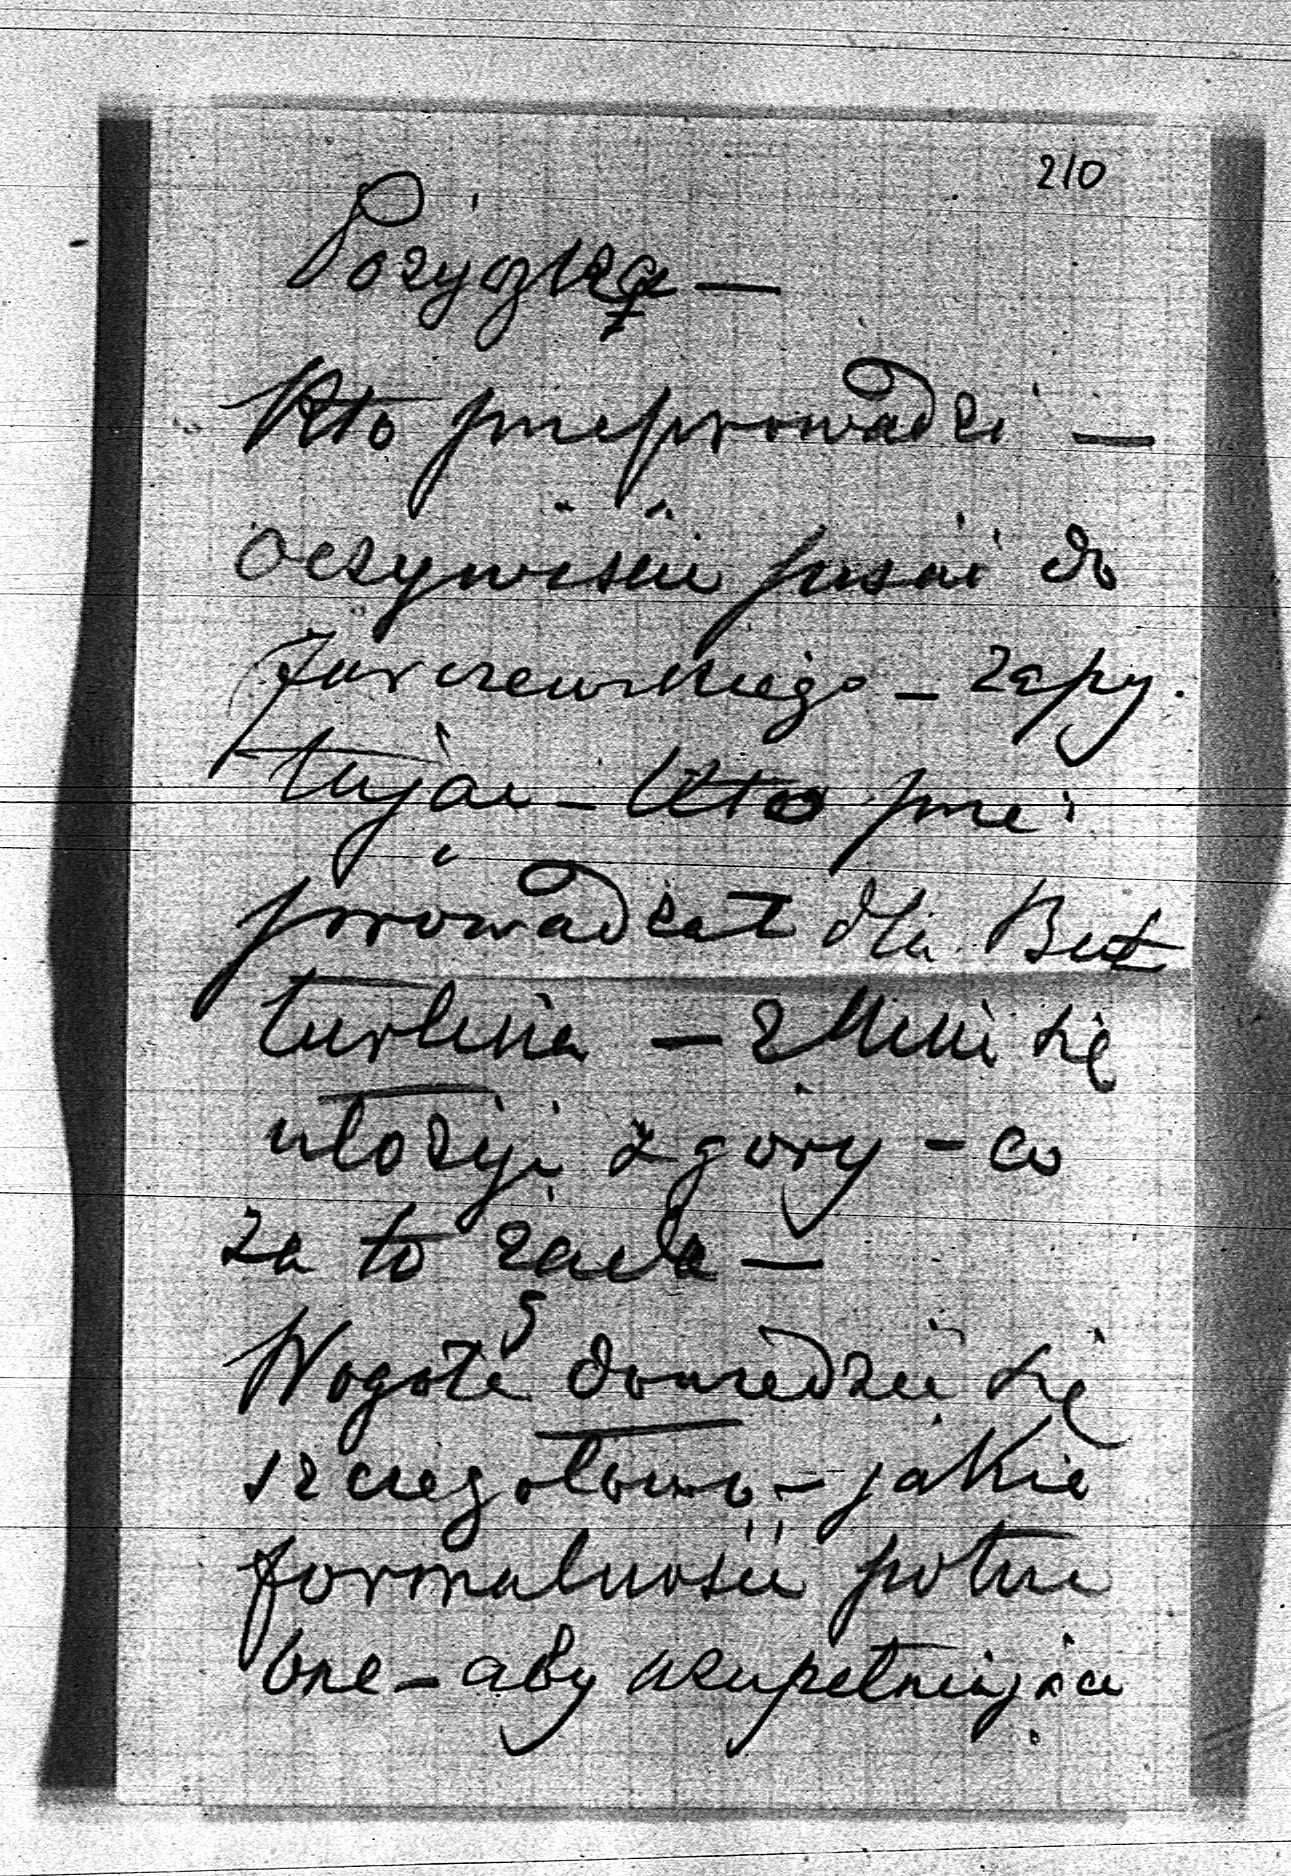 210
Pożyczkę —
Kto przeprowadzi —
oczywiście pisać do
Jurczewskiego — zapy-
tując — Kto prze-
prowadzał dla But
turlina — z Nim się
ułożyć z góry — co
za to żąda —
Wogóle dowiedzieć się
szczegółowo — jakie
formalności potrze
bne — aby uzupełniając